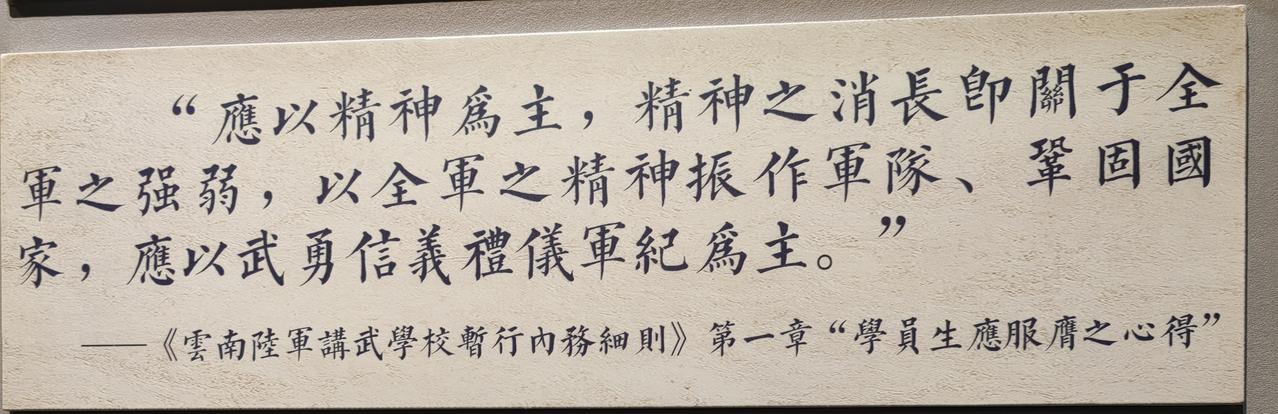 “應以精神爲主，精神之消長卽關于全
軍之强弱，以全軍之精神振作軍隊、鞏固國
家，應以武勇信義禮儀軍紀爲主。”
——《雲南陸軍講武學校暫行內務細則》第一章“學員生應服膺之心得”